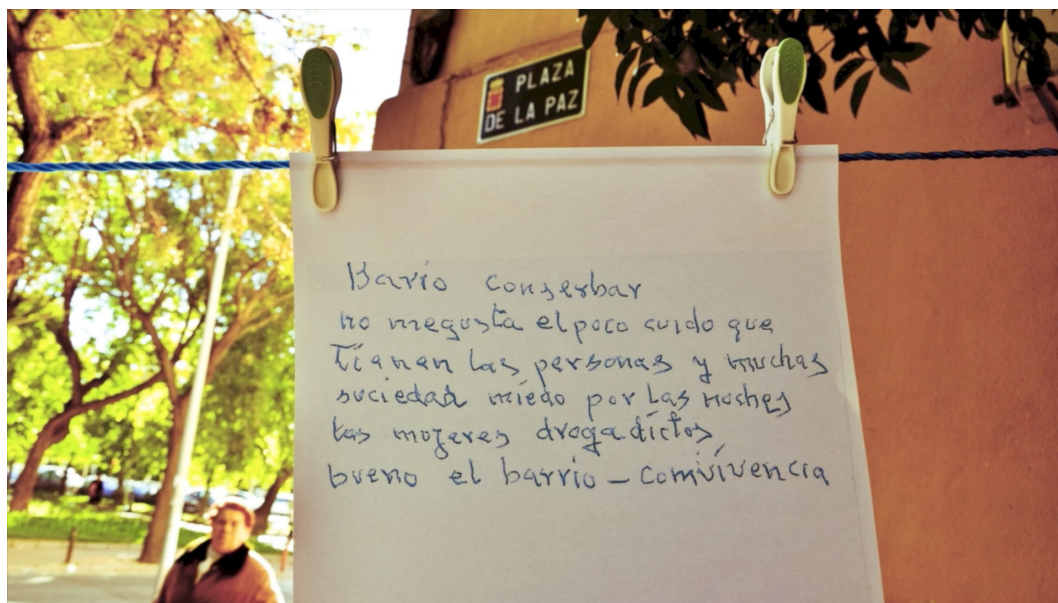 PLAZA
DE LA PAZ
Barrio conserbar
no megusta el poco cuido que
tienen las personas y muchas
suciedad miedo por las noches
las mojeres drogadictos
bueno el barrio - comvivencia